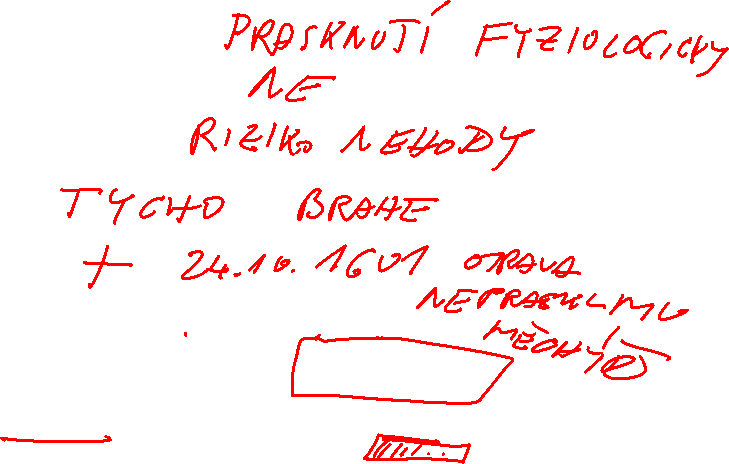 PRASKNUTÍ FYZIOLOGICKY
NE
RIZIKO NEHODY
TYCHO BRAHE
+ 24.10.1601 OTRAVA
NEPRASKL MU
MĚCHÝŘ